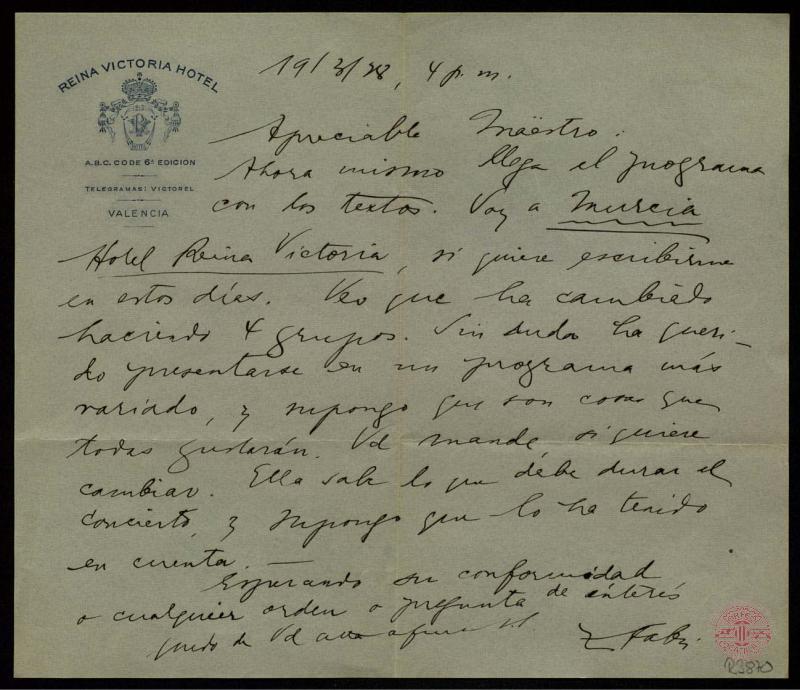 REINA VICTORIA HOTEL
A.B.C. CODE 6ª EDICION
TELEGRAMAS: VICTOREL
VALENCIA
19/3/28, 4 p.m.
Apreciable Maëstro:
Ahora mismo llega el programa
con los textos. Voy a Murcia
Hotel Reina Victoria, si quiere escribirme
en estos días. Veo que ha cambiado
haciendo 4 grupos. Sin duda ha queri-
do presentarse en un programa más
variado, y supongo que son cosas que
todas gustarán. Vd mande, si quiere
cambiar. Ella sabe lo que débe durar el
Concierto, y supongo que lo ha tenido
en cuenta.
Esperando su conformidad
o cualquier orden o pregunta de interés
quedo de Vd
R3870